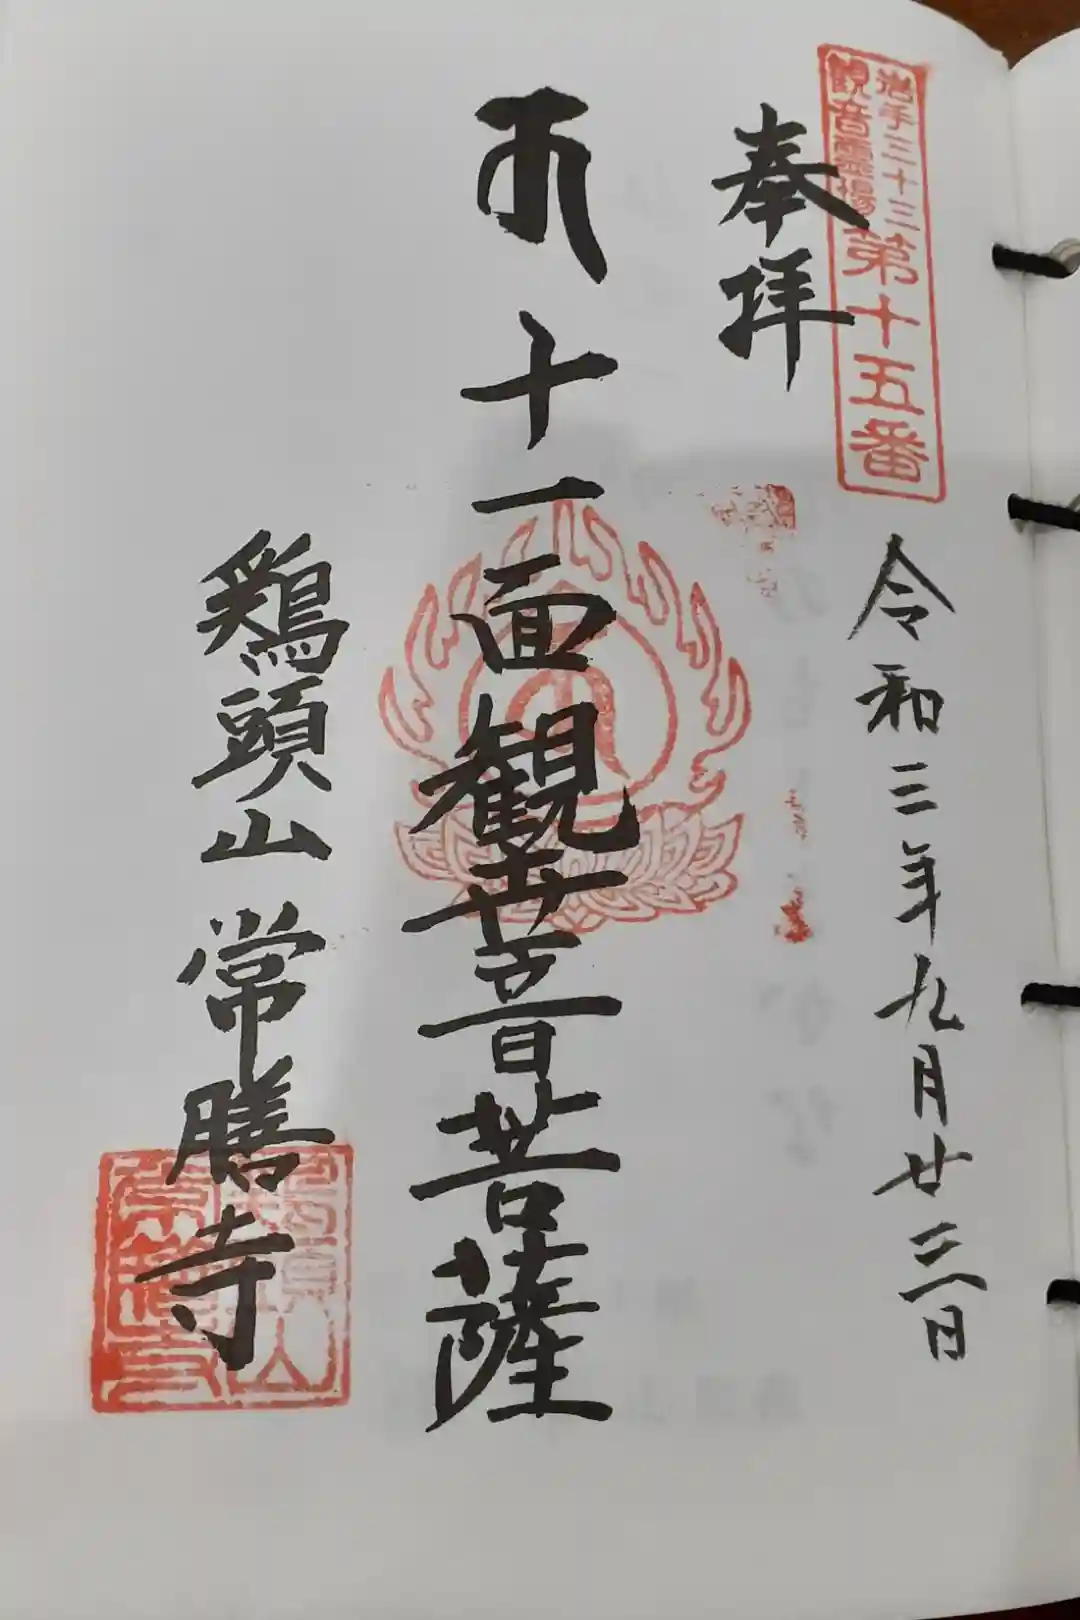 岩手三十三
観音霊場
第十五番
奉拝
令和三年九月廿三日
十一面観世音菩薩
鶏頭山 常膳寺